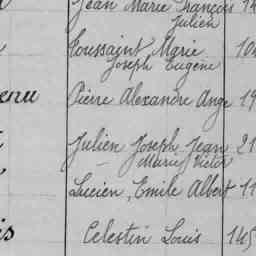 Jean Marie François 14
Julien
Toussaint Marie 10
Joseph Eugène
enu Pierre Alexandre Ange 19
Julien Joseph Jean 21
Marie Victor
Lucien, Emile Albert 11
is Celestin Louis 145